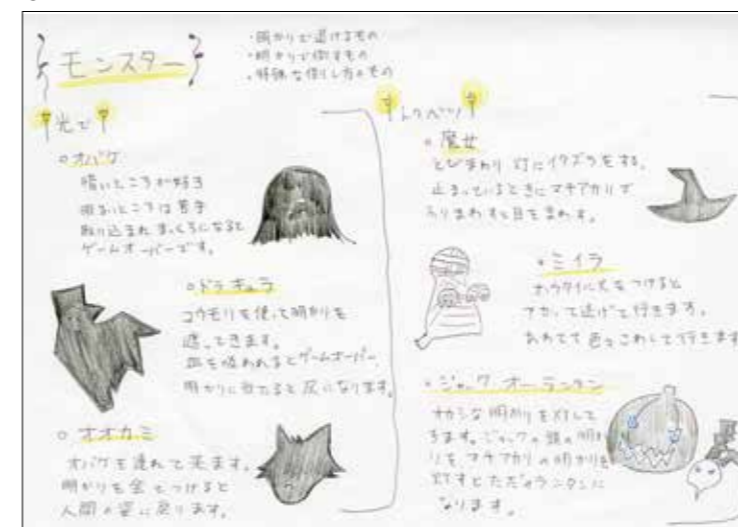 モンスター
・明かりで逃げるもの
・明かりで倒すもの
・特殊な倒し方のもの
光で
オバケ
暗いところが好き
明るいところは苦手
取り込まれまっくろになると
ゲームオーバーです。
ドラキュラ
コウモリを使って明かりを
遮ってきます。
血を吸われるとゲームオーバー。
明かりに当たると灰になります。
オオカミ
オバケを連れて来ます。
明かりを全てつけると
人間の姿に戻ります。
トクベツ
魔女
とびまわり灯にイタズラをする。
止まっているときにマチアカリで
ふりまわすと目をまわす。
ミイラ
ホウタイに火をつけると
アカって逃げて行きます。
あわてて色々こわして行きます
ジャック・オー・ランタン
オカシな明かりを灯して
きます。ジャックの頭の明か
りを、マチアカリの明かりを
灯すとただのランタンに
なります。